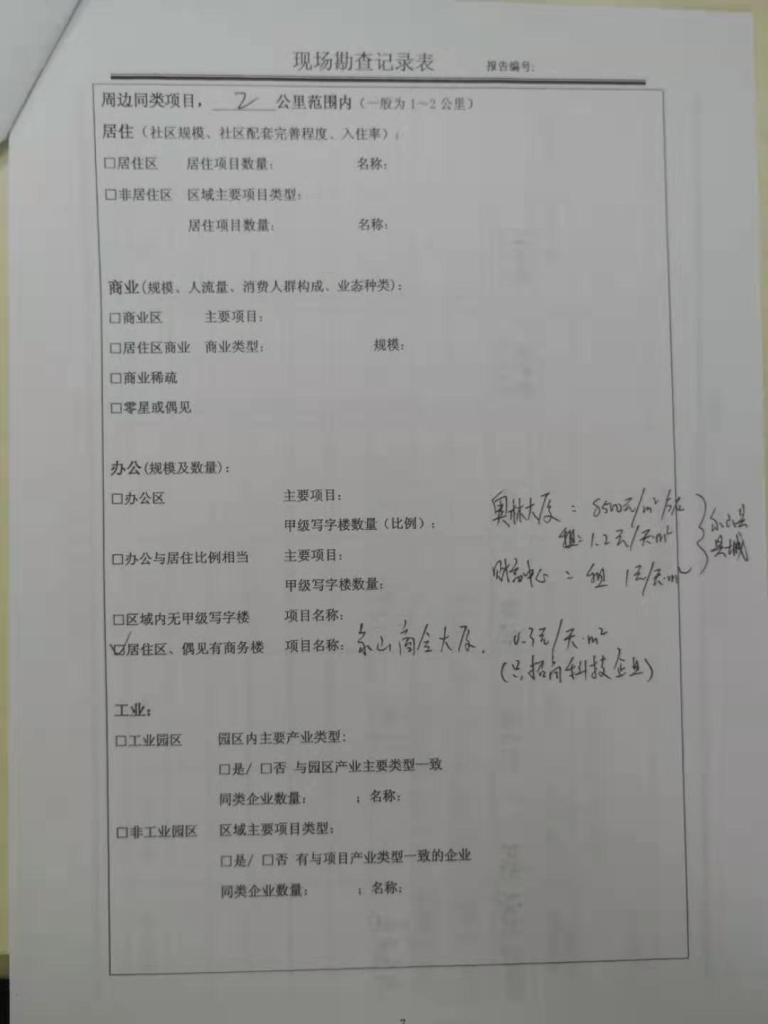 现场勘查记录表 报告编号:
周边同类项目， 2 公里范围内（一般为1~2公里）
居住（社区规模、社区配套完善程度、入住率）:
□居住区 居住项目数量: 名称:
□非居住区 区域主要项目类型:
居住项目数量: 名称:
商业(规模、人流量、消费人群构成、业态种类):
□商业区 主要项目:
□居住区商业 商业类型: 规模:
□商业稀疏
□零星或偶见
办公(规模及数量):
□办公区 主要项目:
奥林大厦: 8500元/m²
甲级写字楼数量（比例）:
租: 1.2元/天·m²
县城
□办公与居住比例相当 主要项目:
财富中心: 租 1元/天·m²
甲级写字楼数量:
□区域内无甲级写字楼 项目名称:
☑居住区、偶见有商务楼 项目名称: 商会大厦. 0.3元/天·m²
(只招商科技企业)
工业:
□工业园区 园区内主要产业类型:
□是/ □否 与园区产业主要类型一致
同类企业数量: ; 名称:
□非工业园区 区域主要项目类型:
□是/ □否 有与项目产业类型一致的企业
同类企业数量: ; 名称:
7